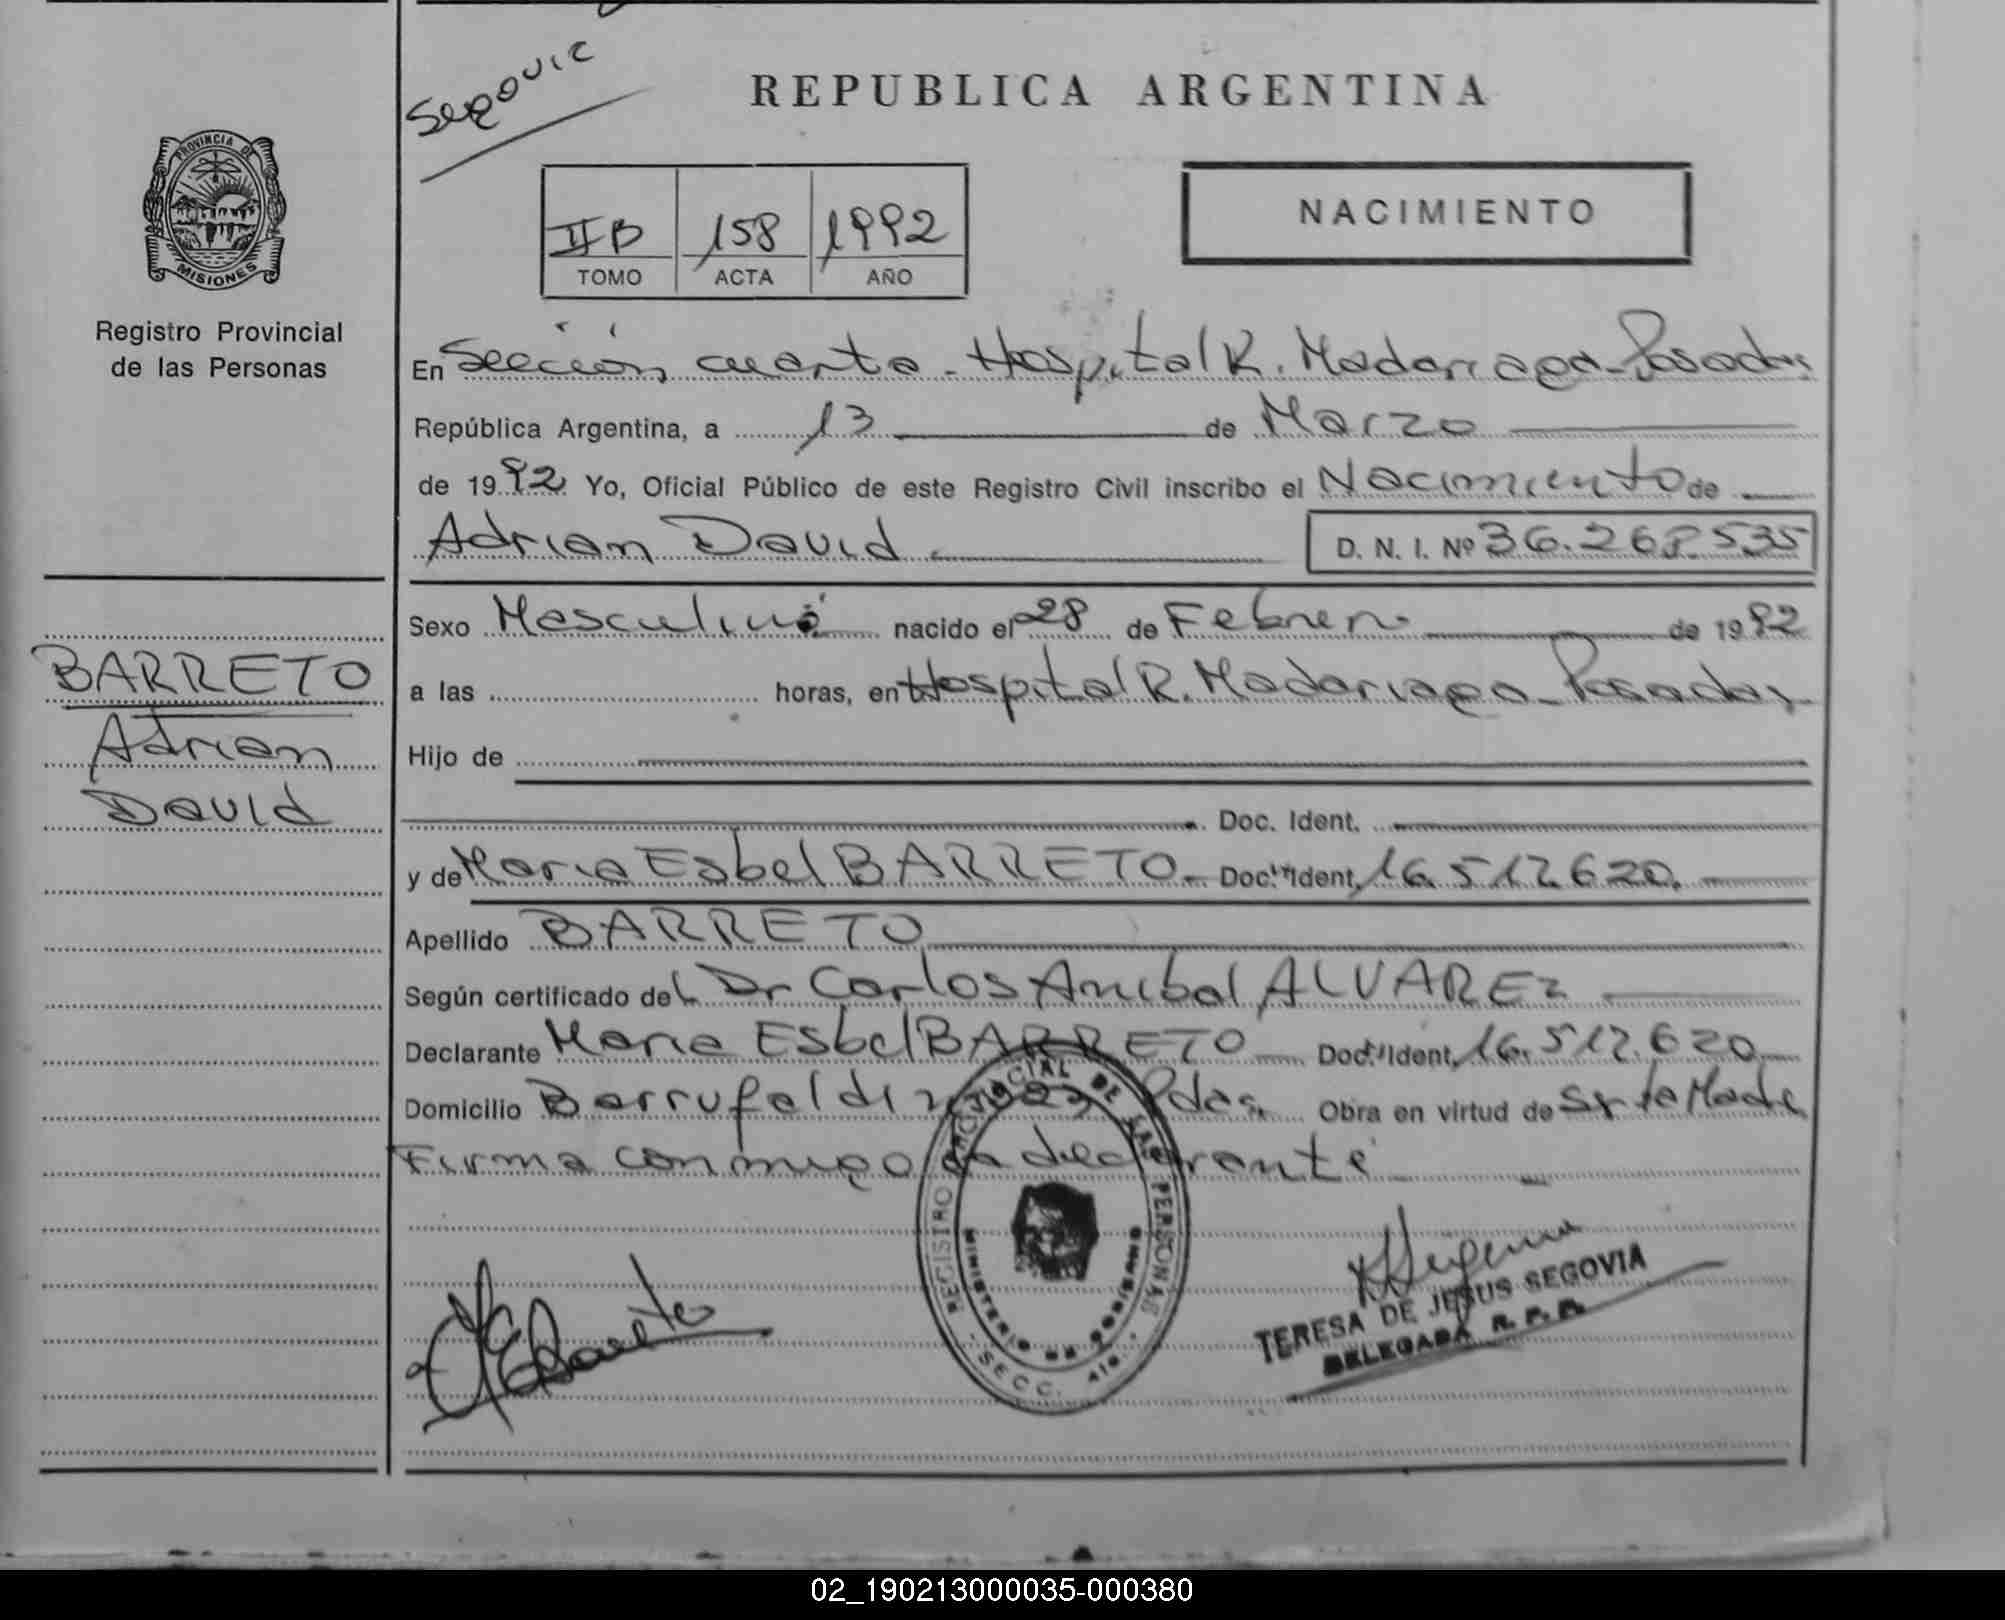 Segovia
REPUBLICA ARGENTINA
PROVINCIA DE
MISIONES
Registro Provincial
de las Personas
IIB 158 1992
TOMO ACTA AÑO
NACIMIENTO
En Sección cuarta - Hospital R. Madariaga - Posadas
República Argentina, a 13 de Marzo
de 1992 Yo, Oficial Público de este Registro Civil inscribo el Nacimiento de
Adrian David D. N. I. Nº
Sexo Masculino nacido el 28 de Febrero de 1992
BARRETO
Adrian
David
a las horas, en Hospital R. Madariaga - Posadas
Hijo de
Doc. Ident.
y de Maria Esbel BARRETO - Doc. Ident. 16.512.620.
Apellido BARRETO
Según certificado del Dr Carlos Anibal ALVAREZ
Declarante Maria Esbel BARRETO Doc. Ident. 16.512.620
Domicilio Pdas. Obra en virtud de ser la Madre
Firma conmigo la declarante
REGISTRO PROVINCIAL DE LAS PERSONAS
MINISTERIO DE GOBIERNO
SECC. 4ta.
TERESA DE JESUS SEGOVIA
DELEGADA R. P. P.
02_190213000035-000380